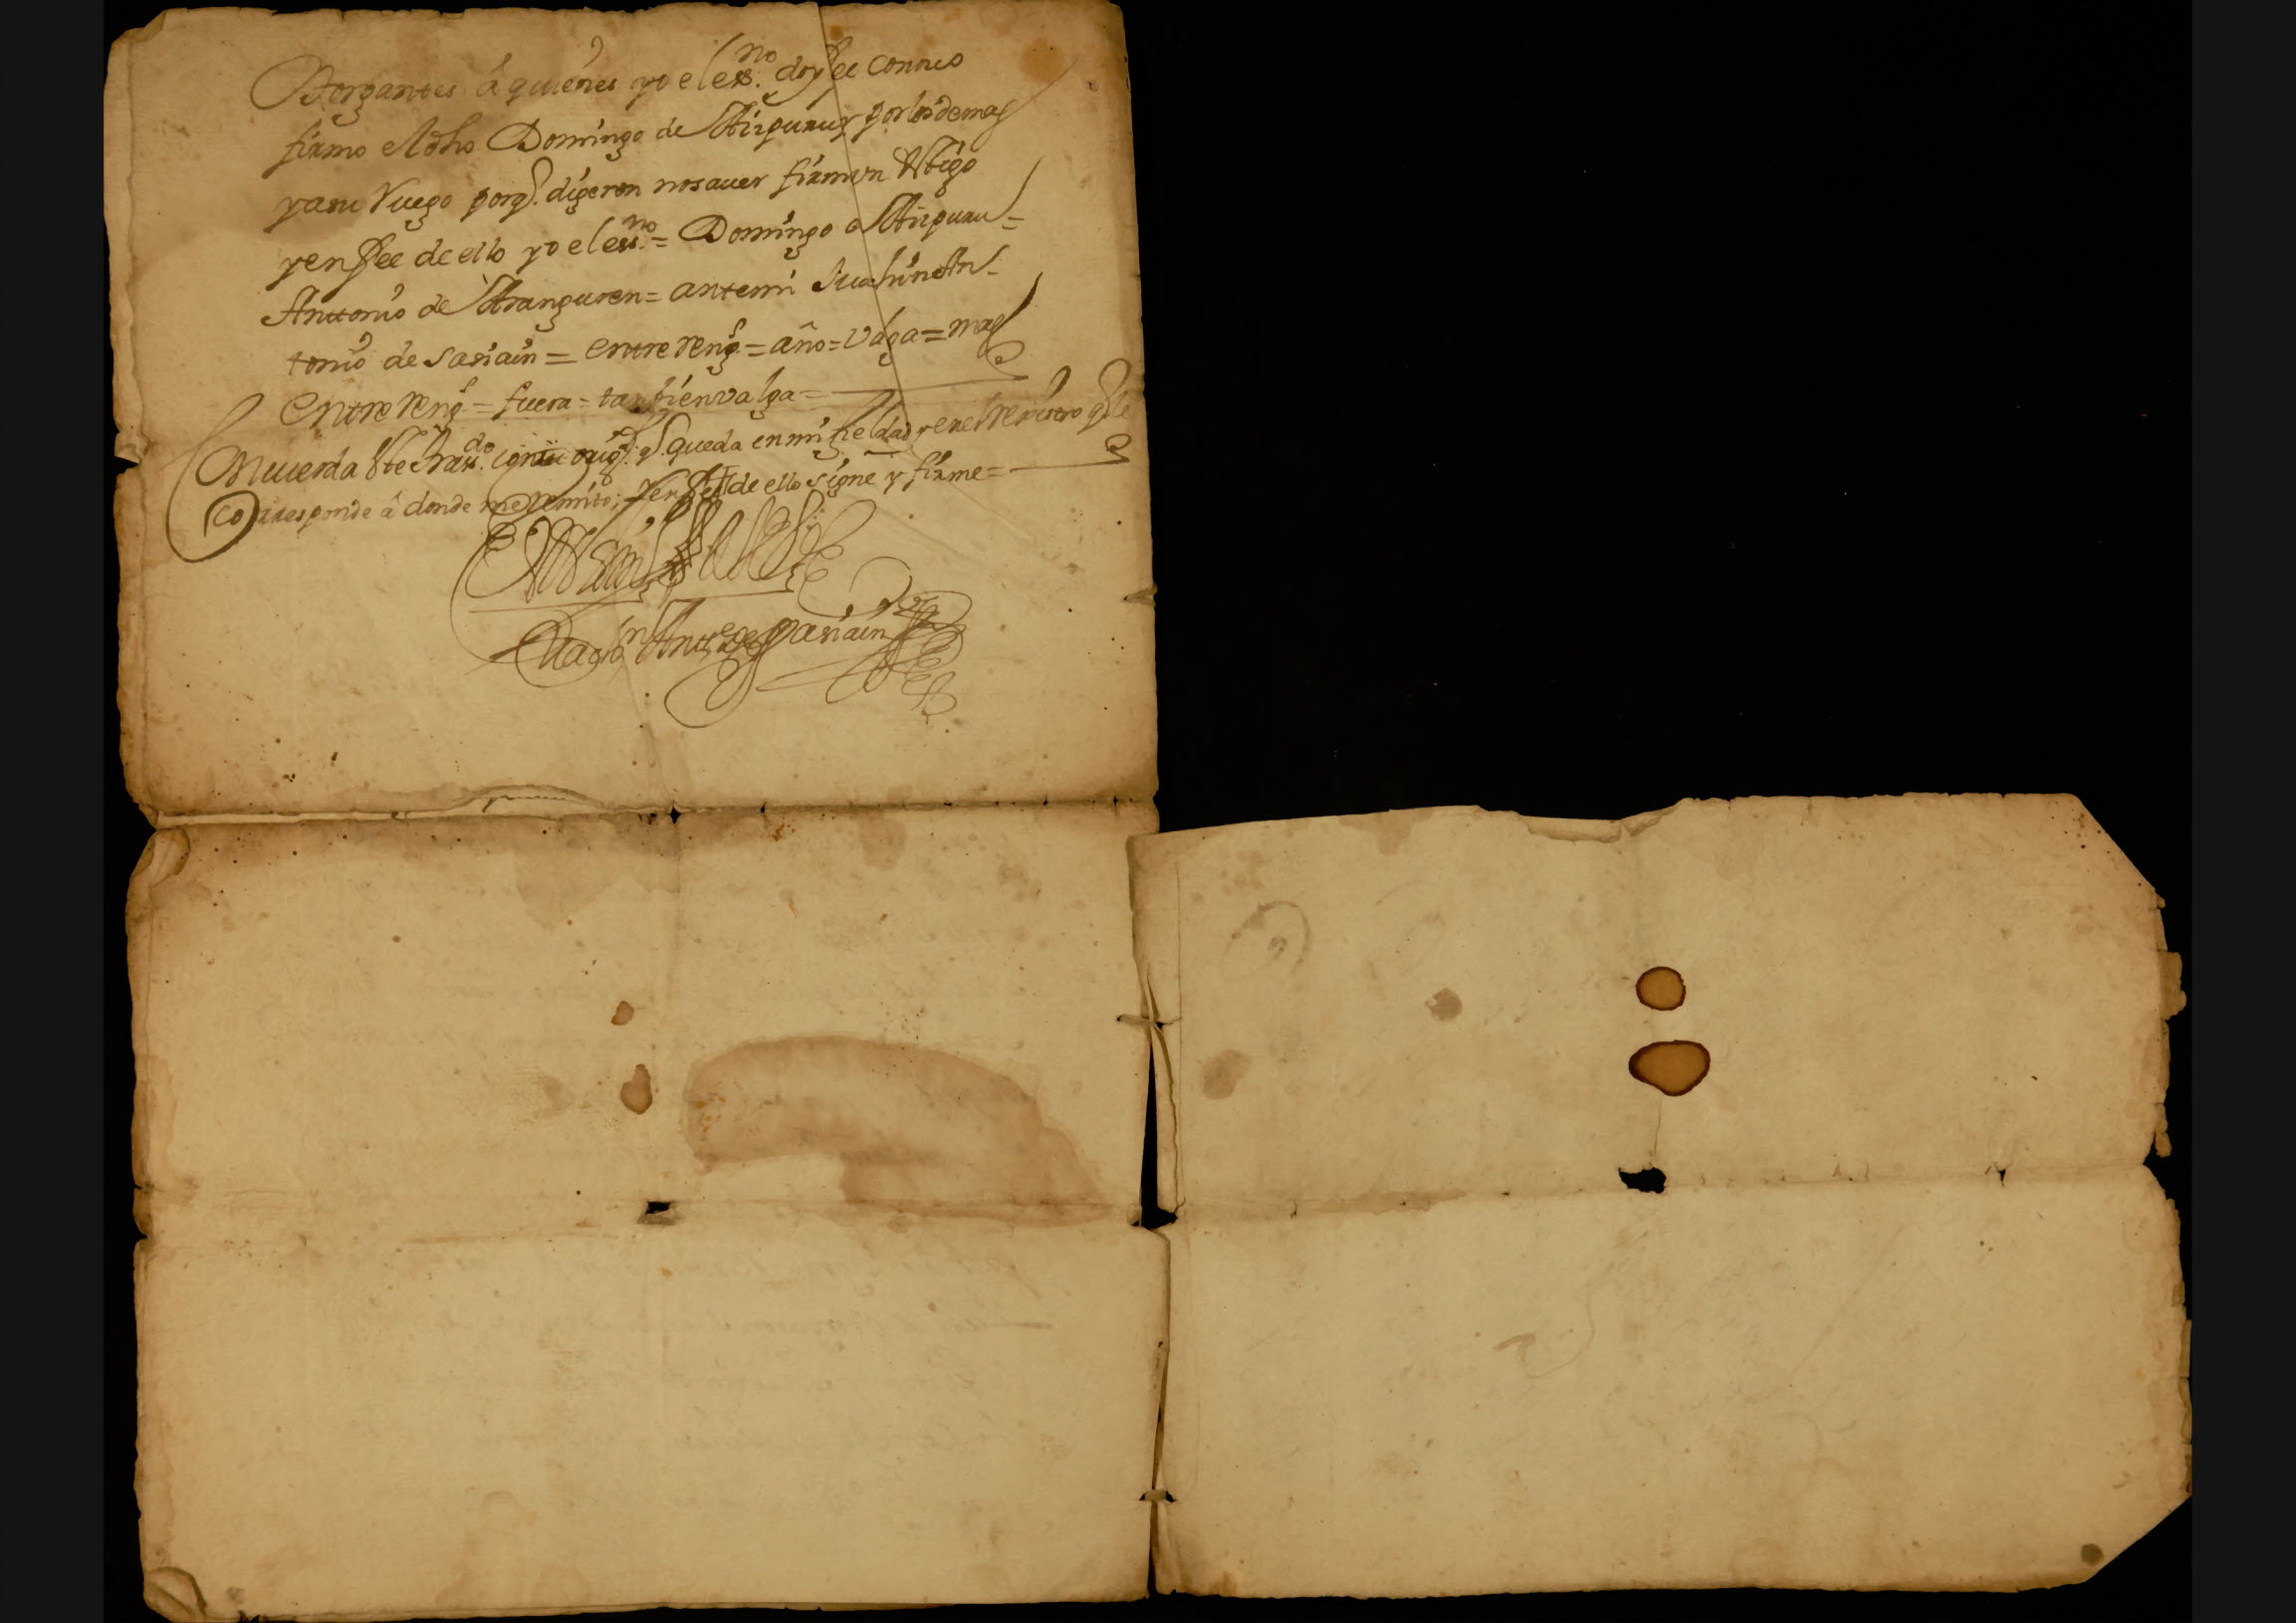 Otorgantes á quienes yo el ess.no doy fee conozco
firmo el dho Domingo de Aizpuru y por los demas
y a su Ruego porq. digeron no saver firmo un testigo
y en fee de ello yo el ess.no = Domingo de Aizpuru =
Anttonio de Aranguren = ante mi Juachin An-
tonio de Sasiain = entre reng. = año = Valga = mas
entre reng. = fuera = tambien valga =
Concuerda este tras.do con su orig.l q. queda en mi fieldad y en el registro q. le
corresponde â donde me remito; y en fee de ello signe y firme =
Juachin Antt.o de Sasiain